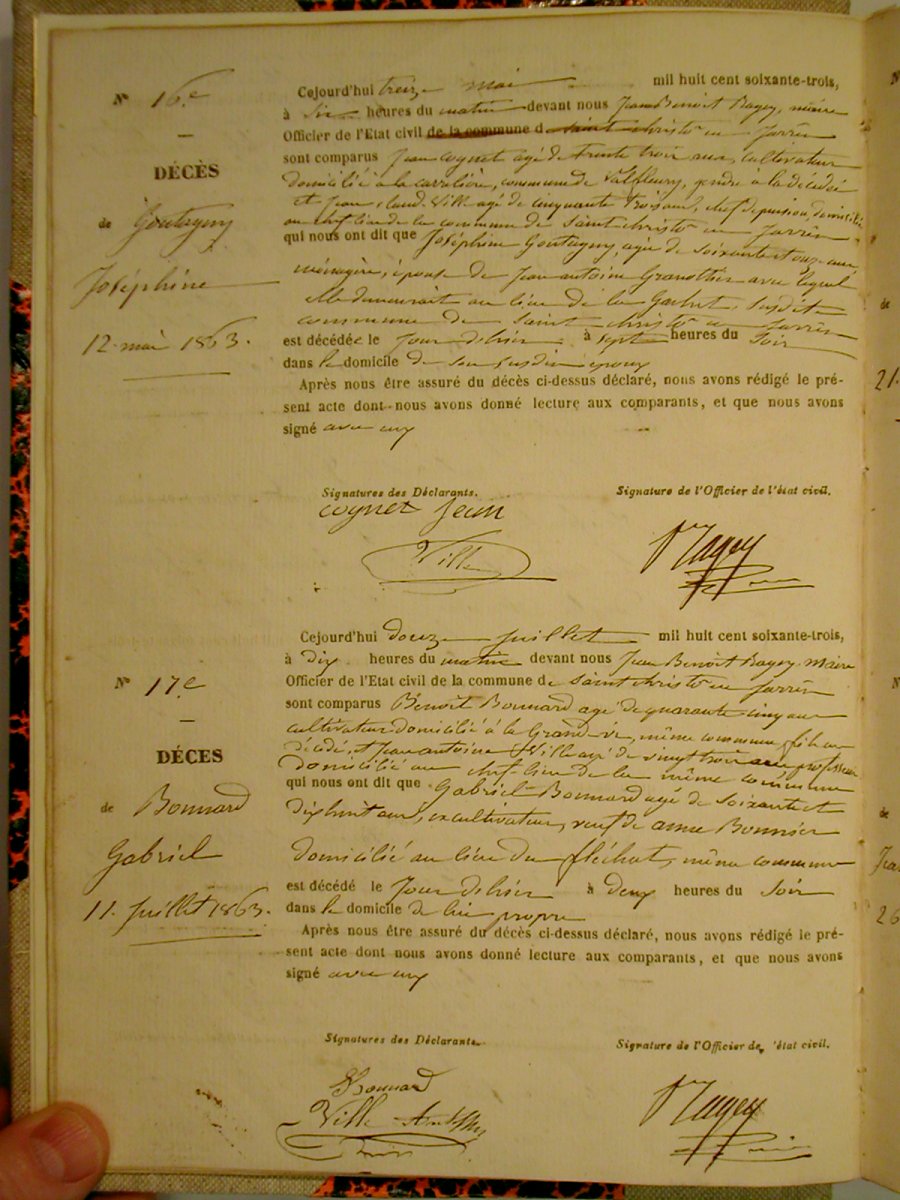 N° 16.e
DÉCÈS
de Goutagny
Joséphine
12. mai 1863.
Cejourd'hui treize mai mil huit cent soixante-trois,
à six heures du matin devant nous Jean Benoit Ragey, maire
Officier de l'Etat civil de la commune d saint christo en Jarrêt
sont comparus Jean Coynet agé de trente trois ans, cultivateur
domicilié à la cavalière, commune de Valfleury, gendre à la décédée
et Jean Claude Ville agé de cinquante trois ans, chef de pension, domicilié
au chef lieu de la commune de saint christo en Jarrêt
qui nous ont dit que Joséphine Goutagny, agée de soixante et onze ans
ménagère, épouse de Jean antoine Granottier avec lequel
elle demeurait au lieu de la susdite
commune de saint christo en Jarrêt
est décédée le jour d'hier à sept heures du soir
dans le domicile de son susdit époux
Après nous être assuré du décès ci-dessus déclaré, nous avons rédigé le pré-
sent acte dont nous avons donné lecture aux comparants, et que nous avons
signé avec eux
Signatures des Déclarants. Signature de l'Officier de l'état civil.
coynet Jean
Ville Ragey
N° 17.e
DÉCES
de Bonnard
Gabriel
11. juillet 1863.
Cejourd'hui douze juillet mil huit cent soixante-trois,
à dix heures du matin devant nous Jean Benoit Ragey maire
Officier de l'Etat civil de la commune de saint christo en Jarrêt
sont comparus Benoit Bonnard agé de quarante cinq ans
cultivateur domicilié à la Grand vie, même commune, fils au
décédé, et Jean antoine Ville agé de vingt trois ans professeur
domicilié au chef-lieu de la même commune
qui nous ont dit que Gabriel Bonnard agé de soixante et
dix huit ans, ex cultivateur, veuf de anne Bonnier
domicilié au lieu du fléchat, même commune
est décédé le jour d'hier à deux heures du soir
dans le domicile de lui propre
Après nous être assuré du décès ci-dessus déclaré, nous avons rédigé le pré-
sent acte dont nous avons donné lecture aux comparants, et que nous avons
signé avec eux
Signatures des Déclarants. Signature de l'Officier de l'état civil.
Bonnard
Ville Ragey